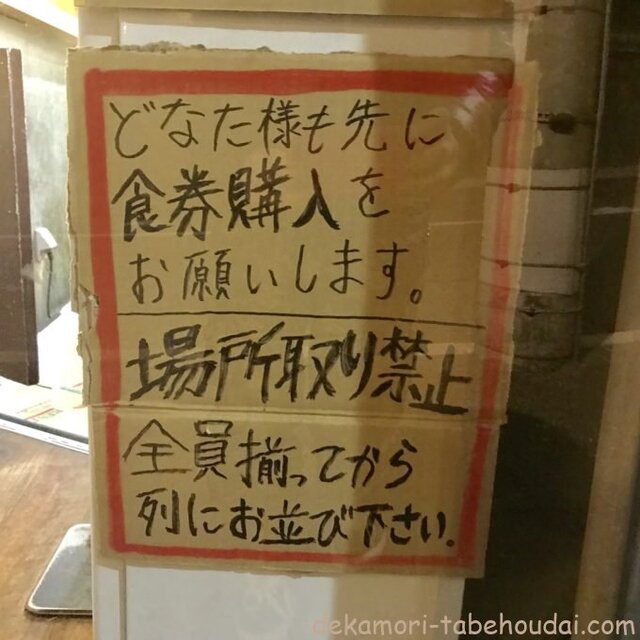 どなた様も先に
食券購入を
お願いします。
場所取り禁止
全員揃ってから
列にお並び下さい.
dekamori-tabehoudai.com